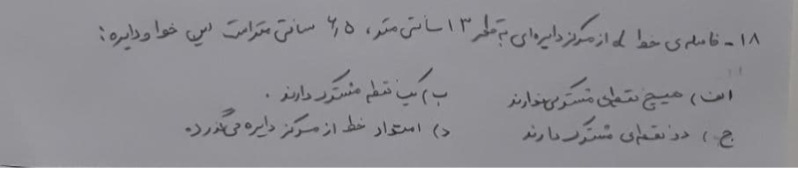 ۱۸- فاصله‌ی خط L از مرکز دایره‌ای به قطر ۱۳ سانتی متر، ۶٫۵ سانتی متر است پس خط و دایره:
الف) هیچ نقطه‌ای مشترکی ندارند ب) یک نقطه مشترک دارند.
ج) دو نقطه‌ای مشترک دارند د) امتداد خط از مرکز دایره می‌گذرد.